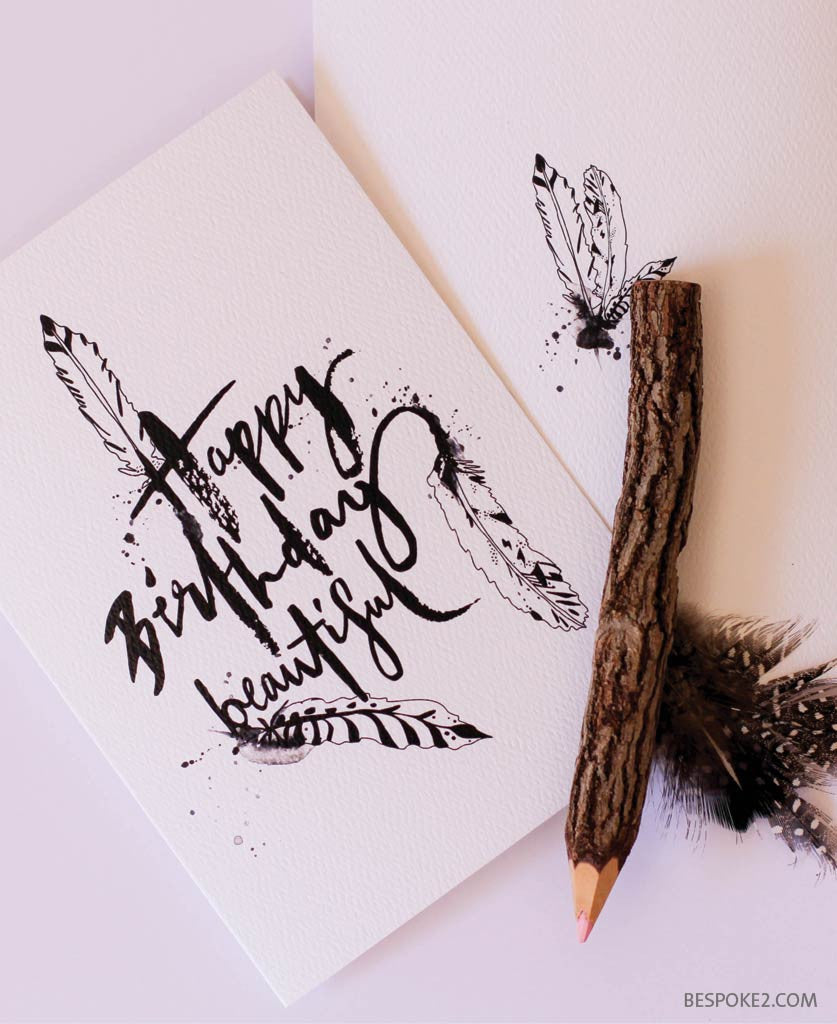 Happy
Birthday
beautiful
BESPOKE2.COM